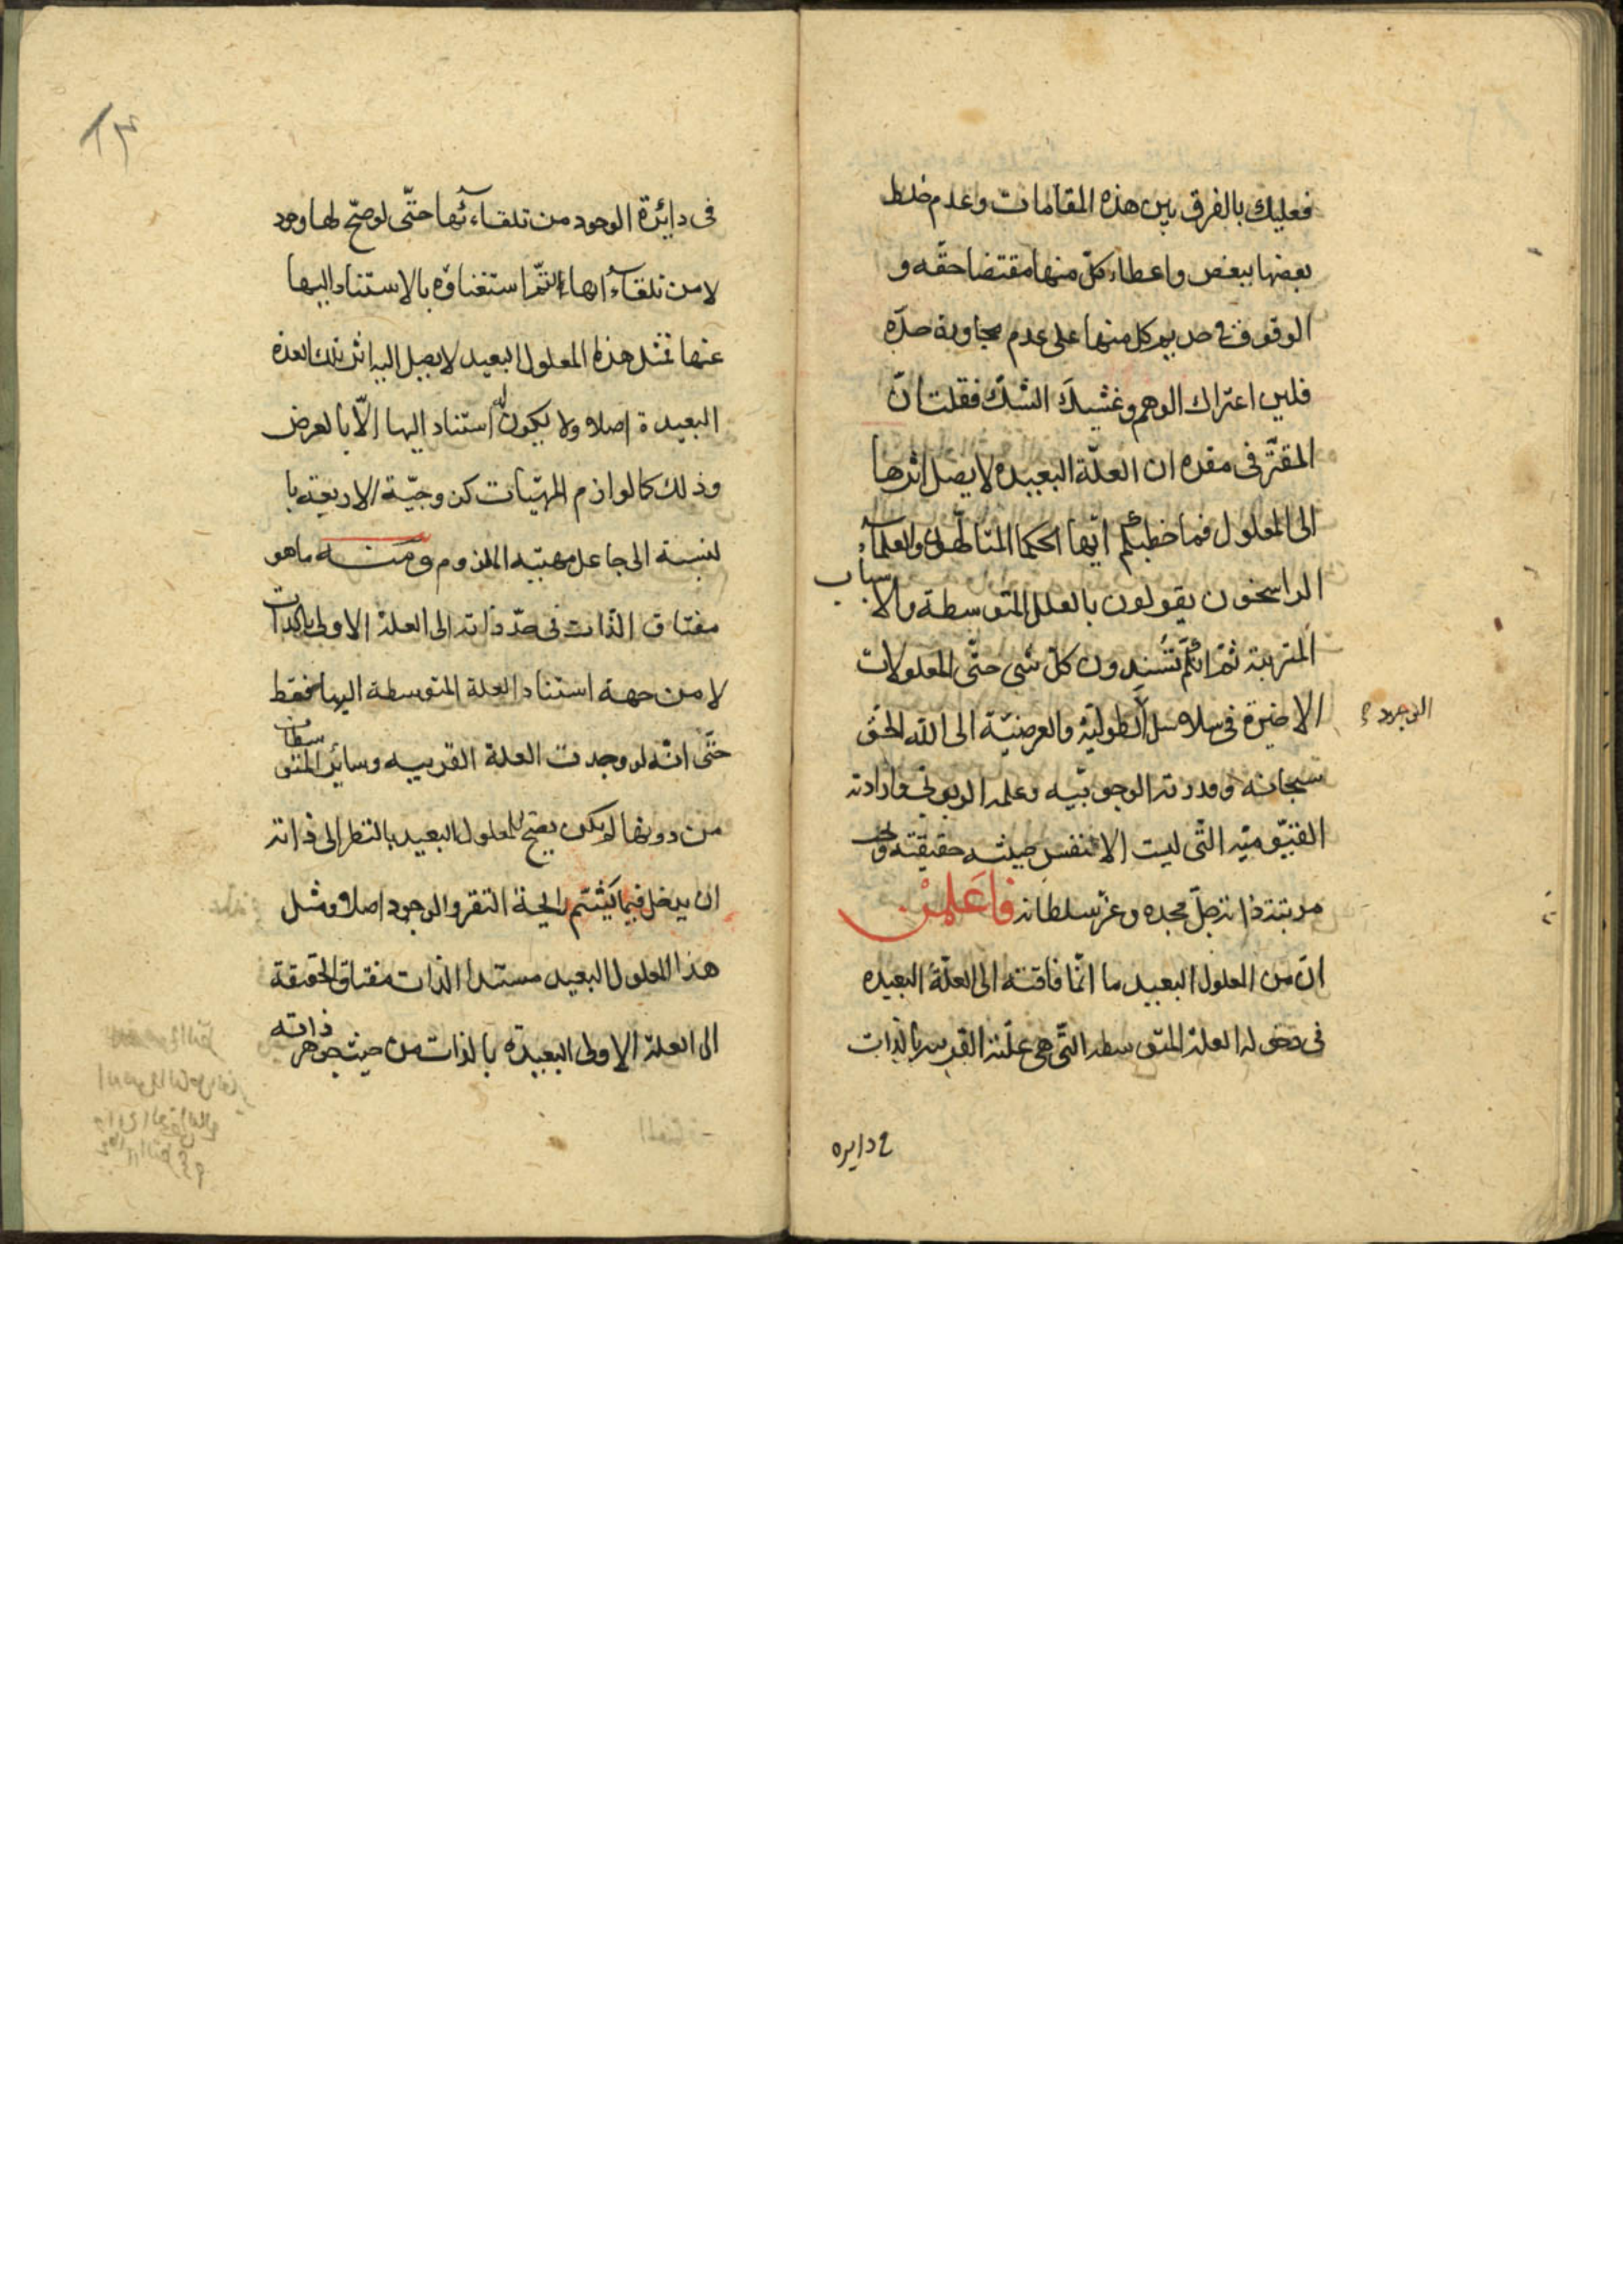 فعليك بالفرق بين هذه المقامات وعدم خلط
بعضها ببعض واعطاء كلّ منها مقتضا حقّه و
الوقوف في حد كل منها على عدم مجاوزة حدّه
فلين اعتراك الوهم وغشيك الشكّ فقلت انّ
المقرّر في مقره ان العلّة البعيده لا يصل اثرها
الى المعلول فما خطبكم ايّها الحكما المتالّهون والعلماء
الراسخون يقولون بالعلل المتوسطة والاسباب
المترتبة ثمّ انّكم تسندون كلّ شى حتّى المعلولات
الاخيرة فى سلاسل الطوليّة والعرضيّة الى الله الحقّ
الوجود
سبحانه وقدرته الوجوبيّه وعلمه الربوبى وارادته
القيّوميّه التّى ليست الا نفس حيثيه حقيقته و
مرتبة ذاته جلّ مجده وعزّ سلطانه فاعلمن
انّ من المعلول البعيد ما انّما فاقته الى العلّة البعيده
فى دخوله العلة المتوسطه التّى هى علّته القريبه بالذات
دايره
فى دائرة الوجود من تلقاء ئها حتّى لو صحّ لها وجود
لا من تلقاء انها لتمّ استغناؤه بالاستناد اليها
عنها فمثل هذا المعلول البعيد لا يصل اليه اثر تلك العلة
البعيدة اصلا ولا يكون له استناد اليها الّا بالعرض
وذلك كالوازم المهيّات كزوجيّة الاربعة با
لنسبة الى جاعل مهيّه الملزوم ومنه ما هو
مفتاق الذّات فى حدّ ذاته الى العلة الاولى بالذات
لا من جهة استناد العلة المتوسطة اليها فقط
حتّى انّه لو وجدت العلة القريبيه وسائر المتوسطات
من دونها لم يكن يصحّ للمعلول البعيد بالنظر الى ذاته
ان يدخل فيما يشتم رايحة التقرر والوجود اصلا ومثل
هذا المعلول البعيد مستند الذات مفتاق الحقيقة
الى العلة الاولى البعيدة بالذات من حيث جوهر ذاته